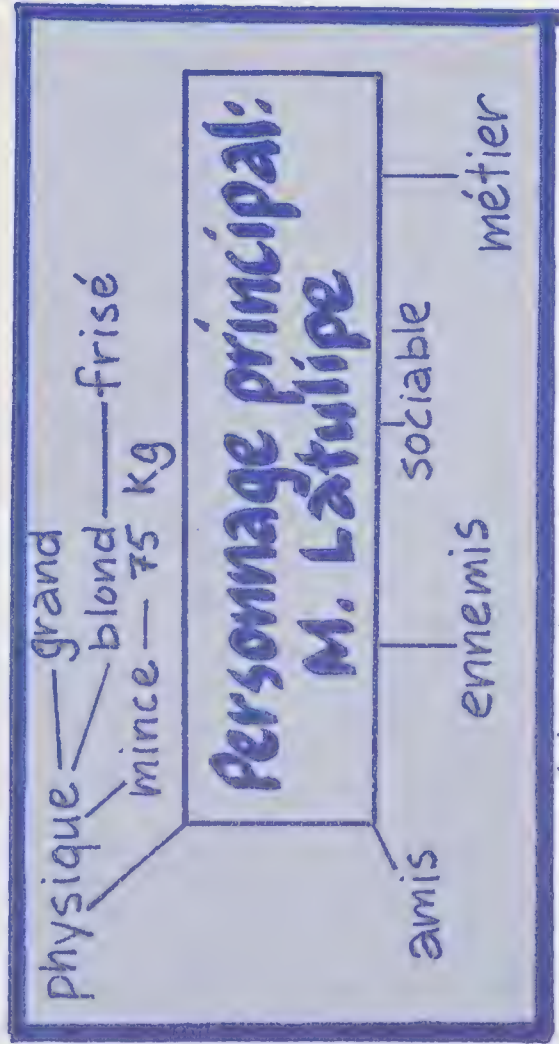 physique
grand
blond
frisé
mince
75 kg
Personnage principal:
M. Latulipe
amis
ennemis
sociable
métier